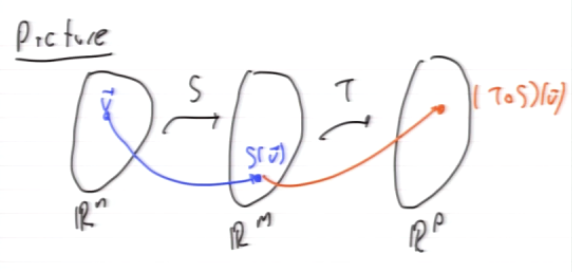 Picture
S
T
v⃗
(T∘S)(v⃗)
S(v⃗)
ℝⁿ
ℝᵐ
ℝᵖ